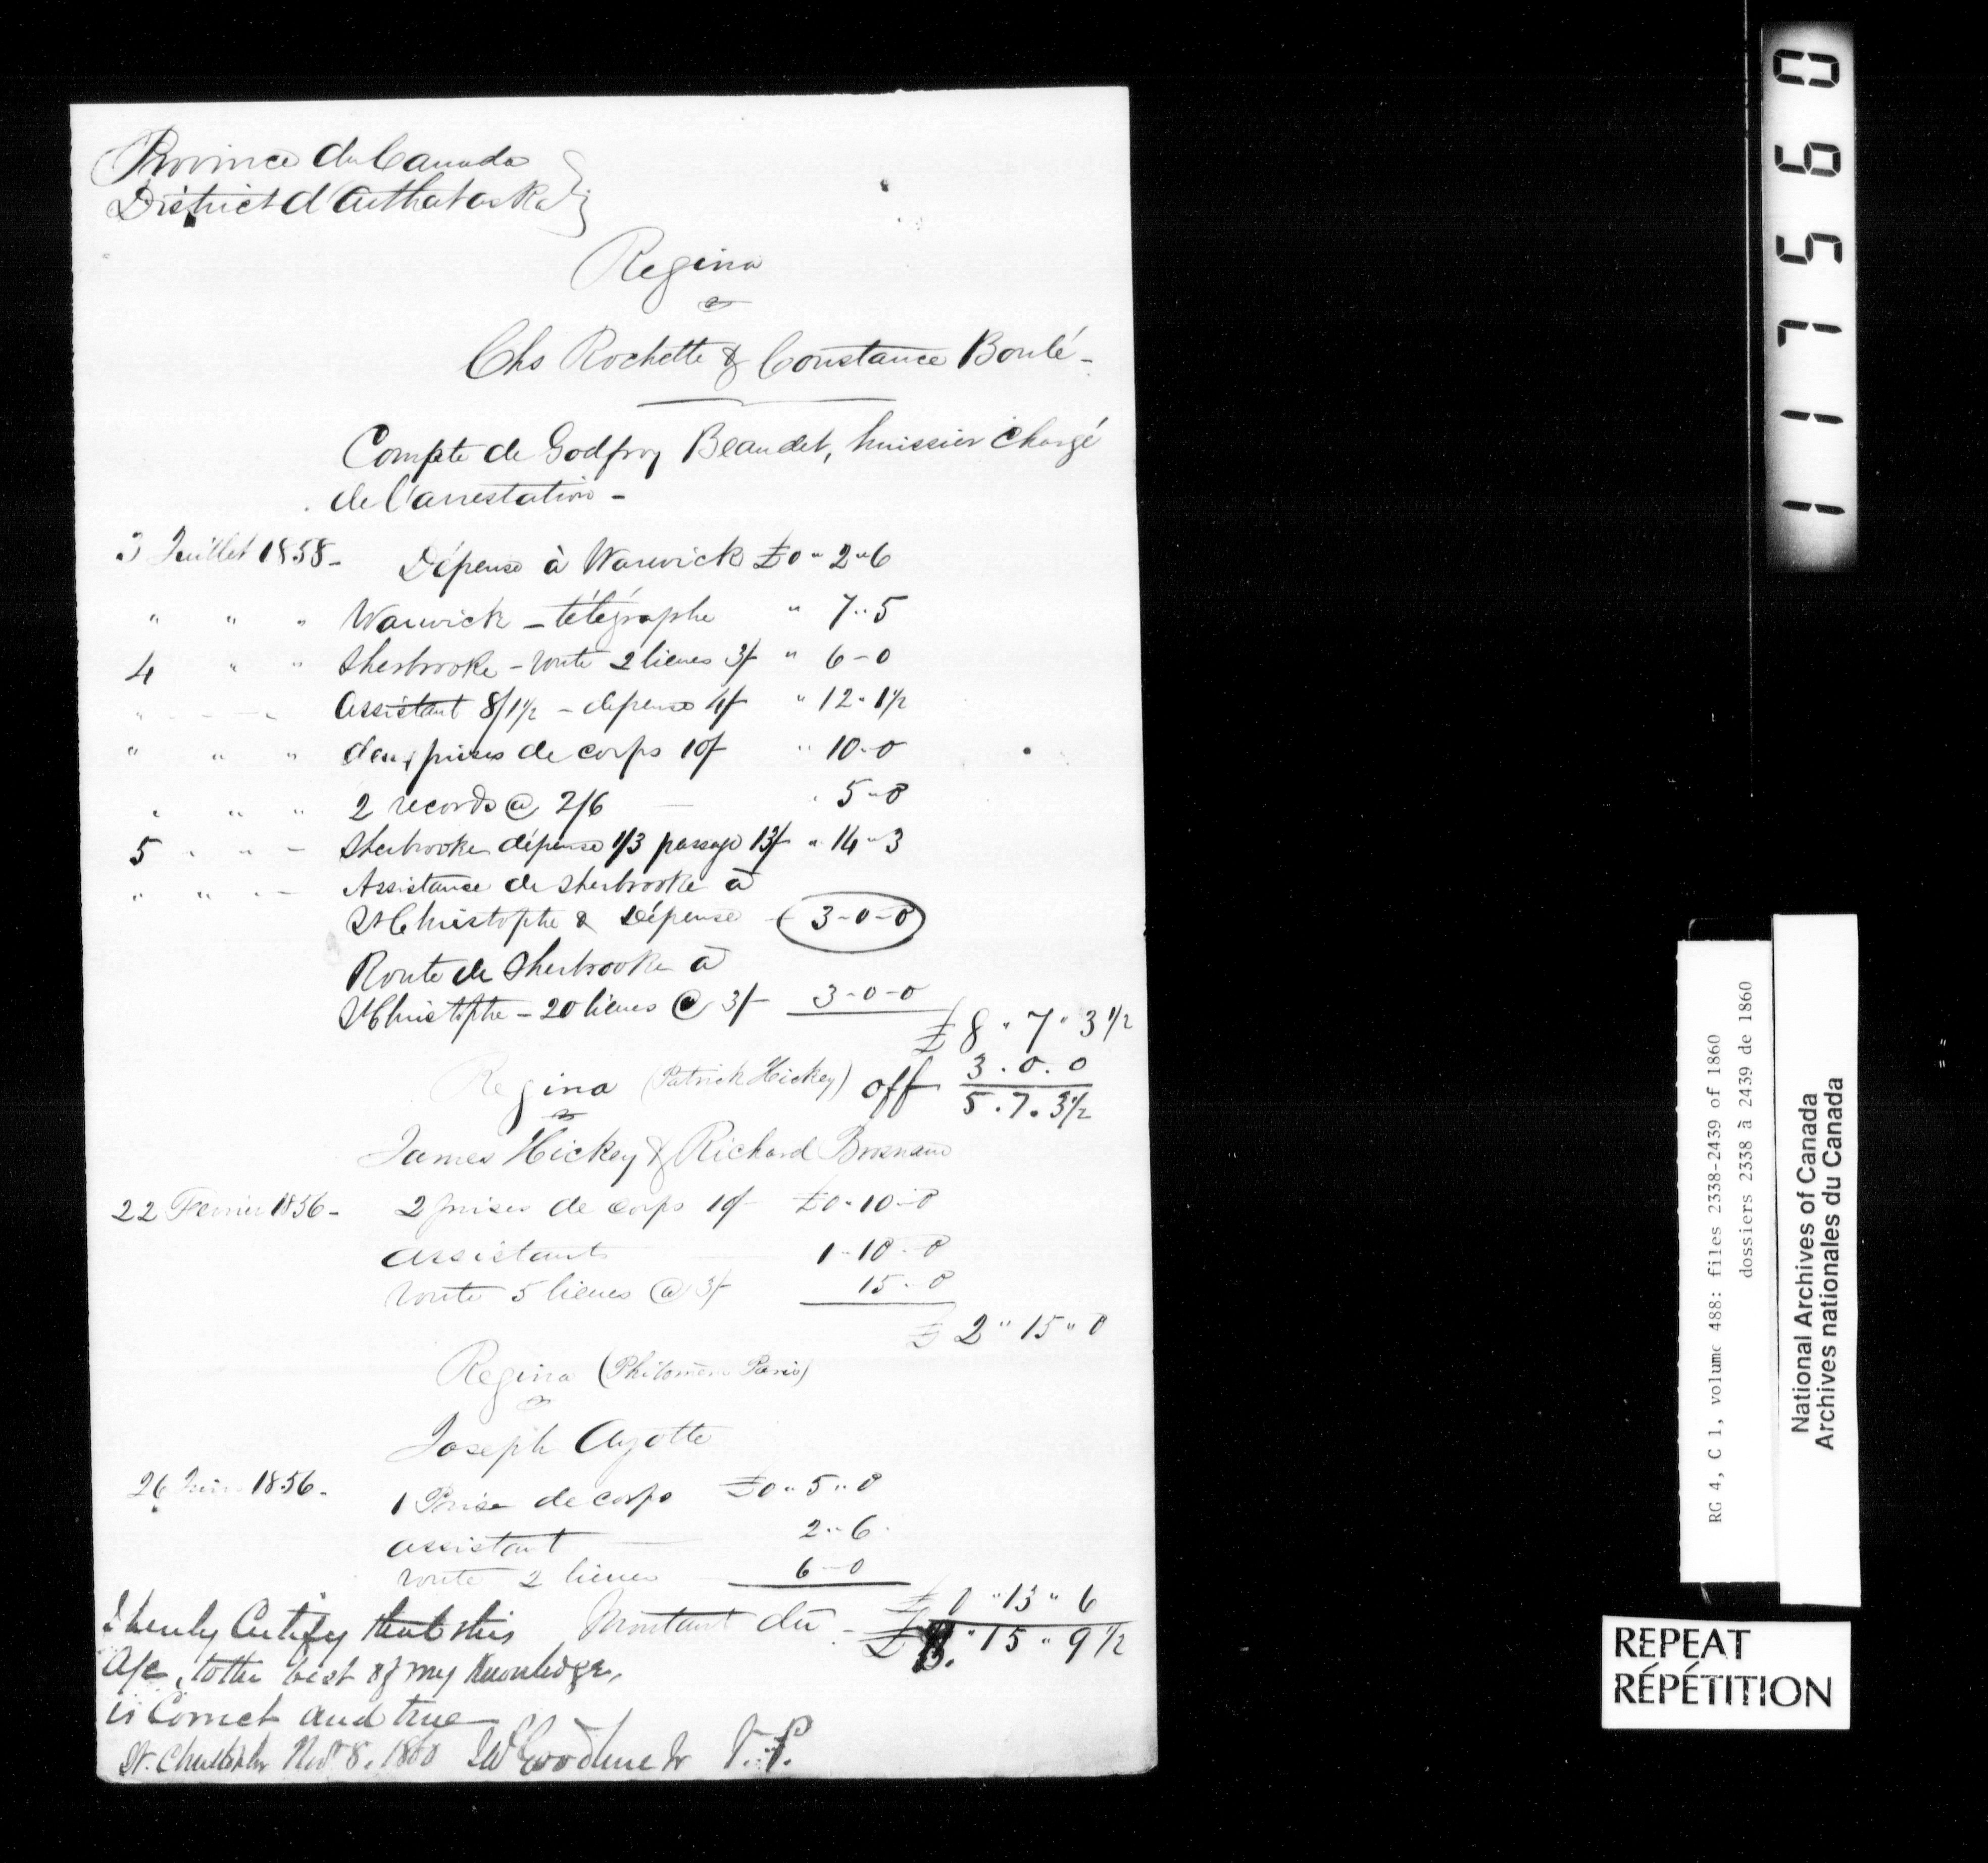 Province du Canada
District d'Arthabaska
Regina
vs
Chs Rochette & Constance Boulé -
Compte de Godfroy Beaudet, huissier chargé
de l'arrestation -
3 Juillet 1858 - Dépense à Warwick £0 " 2 " 6
" " " Warwick - télégraphe " 7 " 5
4 " " Sherbrooke - route 2 lieues 3/- " 6 - 0
" - - - Assistant 8/1½ - depense 4/- " 12 " 1½
" " " deux prises de corps 10/- " 10 - 0
" " " 2 records @ 2/6 — " 5 " 0
5 " " - Sherbrooke dépense 1/3 passage 13/- " 14 " 3
" " " - Assistance de Sherbrooke à
St Christophe & Dépense - 3 - 0 - 0
Route de Sherbrooke à
St Christophe - 20 lieues @ 3/- 3 - 0 - 0
£ 8 " 7 " 3 1/2
Regina (Patrick Hickey) off 3 . 0 . 0
vs 5 . 7 . 3½
James Hickey & Richard Brosnan
22 Fevrier 1856 - 2 prises de corps 10/- £0 " 10 - 0
assistants 1 - 10 - 0
route 5 lieues @ 3/- 15 - 0
£ 2 " 15 " 0
Regina (Philomène Paris)
vs
Joseph Ayotte
26 Juin 1856 - 1 Prise de corps £0 " 5 " 0
assistant — 2 " 6
route 2 lieues 6 - 0
£ 0 " 13 " 6
I hereby Certify that this Montant dû - £ 8. " 15 " 9 1/2
A/c, to the best of my Knowledge,
is Correct and true
St. Christophe Nov 8. 1860
117560
RG 4, C 1, volume 488: files 2338-2439 of 1860
dossiers 2338 à 2439 de 1860
National Archives of Canada
Archives nationales du Canada
REPEAT
RÉPÉTITION